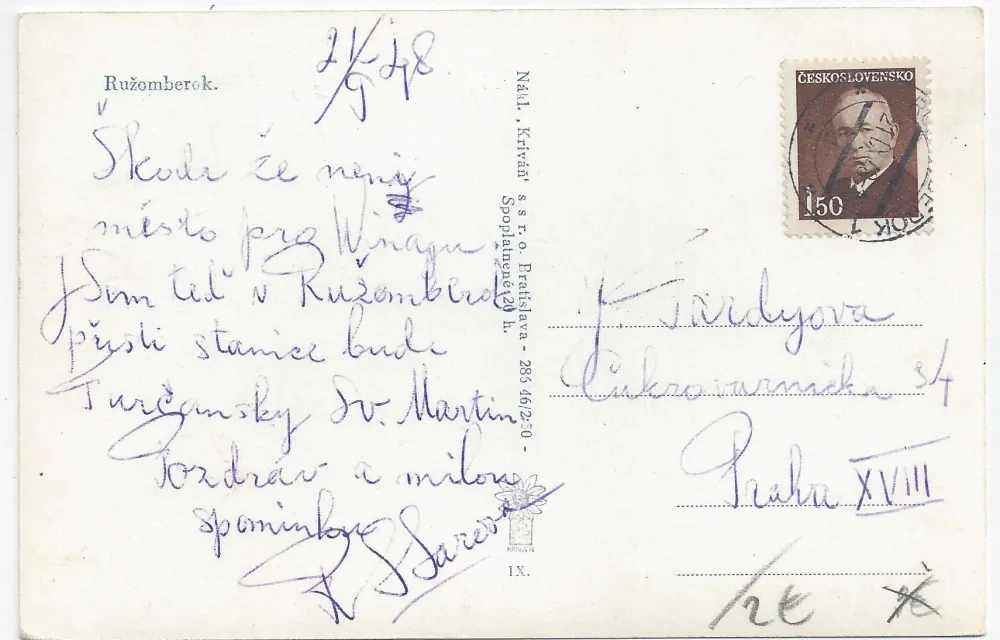 Ružomberok.
21/9 48
Škoda že není
město pro Winagu
Jsem teď v Ružomberoku
příští stanice bude
Turčansky Sv. Martin
Pozdrav a milou
spominku
Nákl. „Kriváň" s. s r. o. Bratislava - 286 46/2-50 -
Spoplatnené 20 h.
KRIVÁŇ
IX.
ČESKOSLOVENSKO
1.50
Cukrovarnicka 34
Praha XVIII
2€